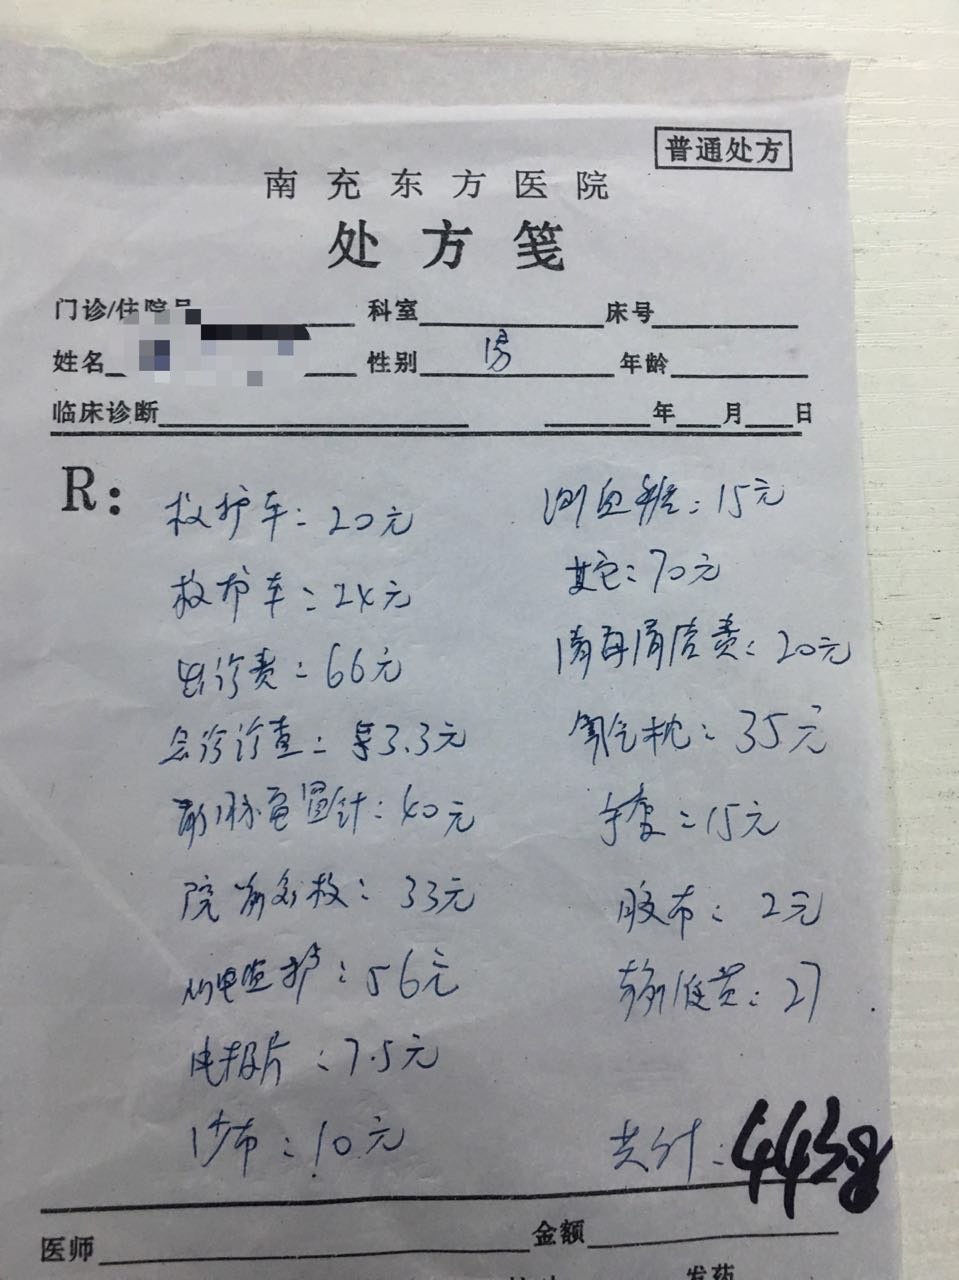 普通处方
南充东方医院
处方笺
门诊/住院号 科室 床号
姓名 性别 男 年龄
临床诊断 年 月 日
R:
救护车:20元
救护车:24元
出诊费:66元
会诊诊查:3.3元
静脉留置针:40元
院前急救:33元
心电监护:56元
电极片:7.5元
纱布:10元
测血糖:15元
其它:70元
消毒费:20元
氧气枕:35元
手套:15元
胶布:2元
输液费:27
共计:443.8
医师 金额
发药